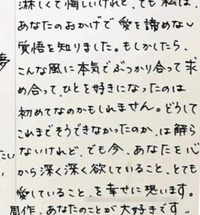 淋しくて悔しいけれど、でも私は、
あなたのおかげで愛を諦めない
覚悟を知りました。もしかしたら、
こんな風に本気でぶつかり合って求
め合って、ひとを好きになったのは
初めてなのかもしれません。どうして
これまでそうできなかったのか、は解ら
ないけれど、でも今、あなたを心
から深く深く欲していること、とても
愛していること、を幸せに思います。
周作、あなたのことが大好きです。